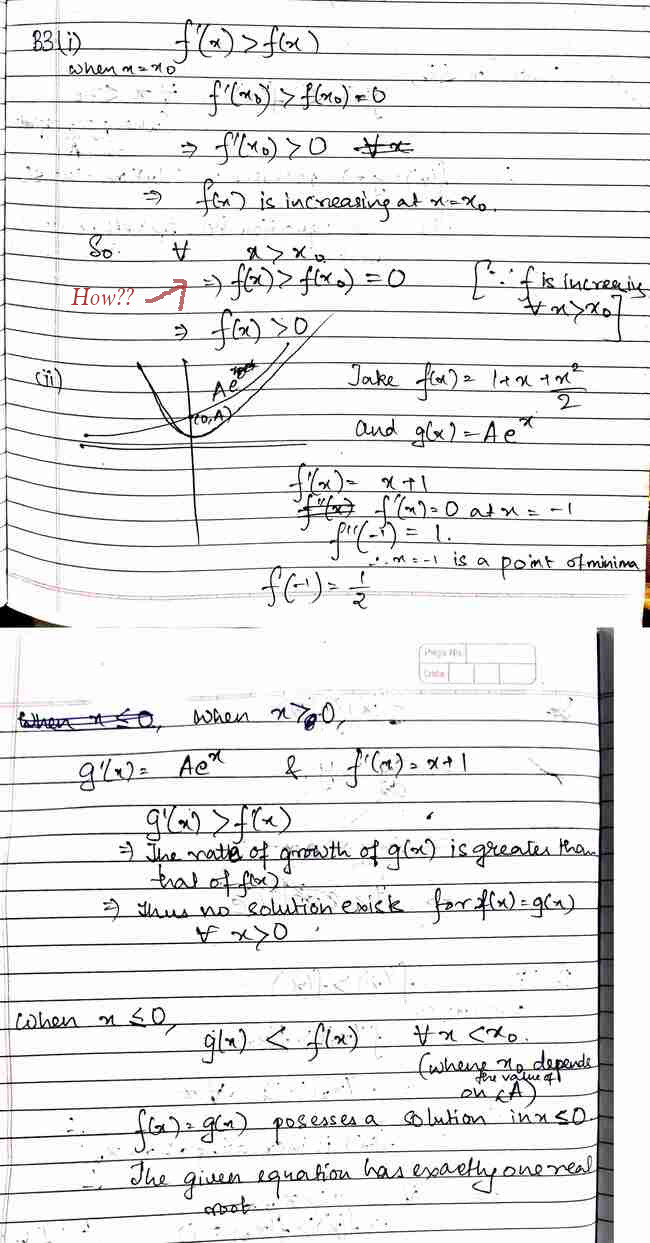 B3(i) f'(x) > f(x)
when x = x₀
∴ f'(x₀) > f(x₀) = 0
⇒ f'(x₀) > 0 ∀x
⇒ f(x) is increasing at x = x₀.
So ∀ x > x₀
How?? ⇒ f(x) > f(x₀) = 0 [∵ f is increasing
∀ x > x₀]
⇒ f(x) > 0
(ii) Ae
(0, A)
Take f(x) = 1 + x + x²/2
and g(x) = Ae^x
f'(x) = x + 1
f''(x) f'(x) = 0 at x = -1
f''(-1) = 1.
∴ x = -1 is a point of minima
f(-1) = 1/2
Page No.
Date
When x ≤ 0, when x > 0,
g'(x) = Ae^x & f'(x) = x + 1
g'(x) > f'(x)
⇒ The rate of growth of g(x) is greater than
that of f(x)
⇒ Thus no solution exists for f(x) = g(x)
∀ x > 0
When x ≤ 0,
g(x) < f(x) ∀ x < x₀.
(where x₀ depends
on the value of A)
∴ f(x) = g(x) posesses a solution in x ≤ 0
∴ The given equation has exactly one real
root.